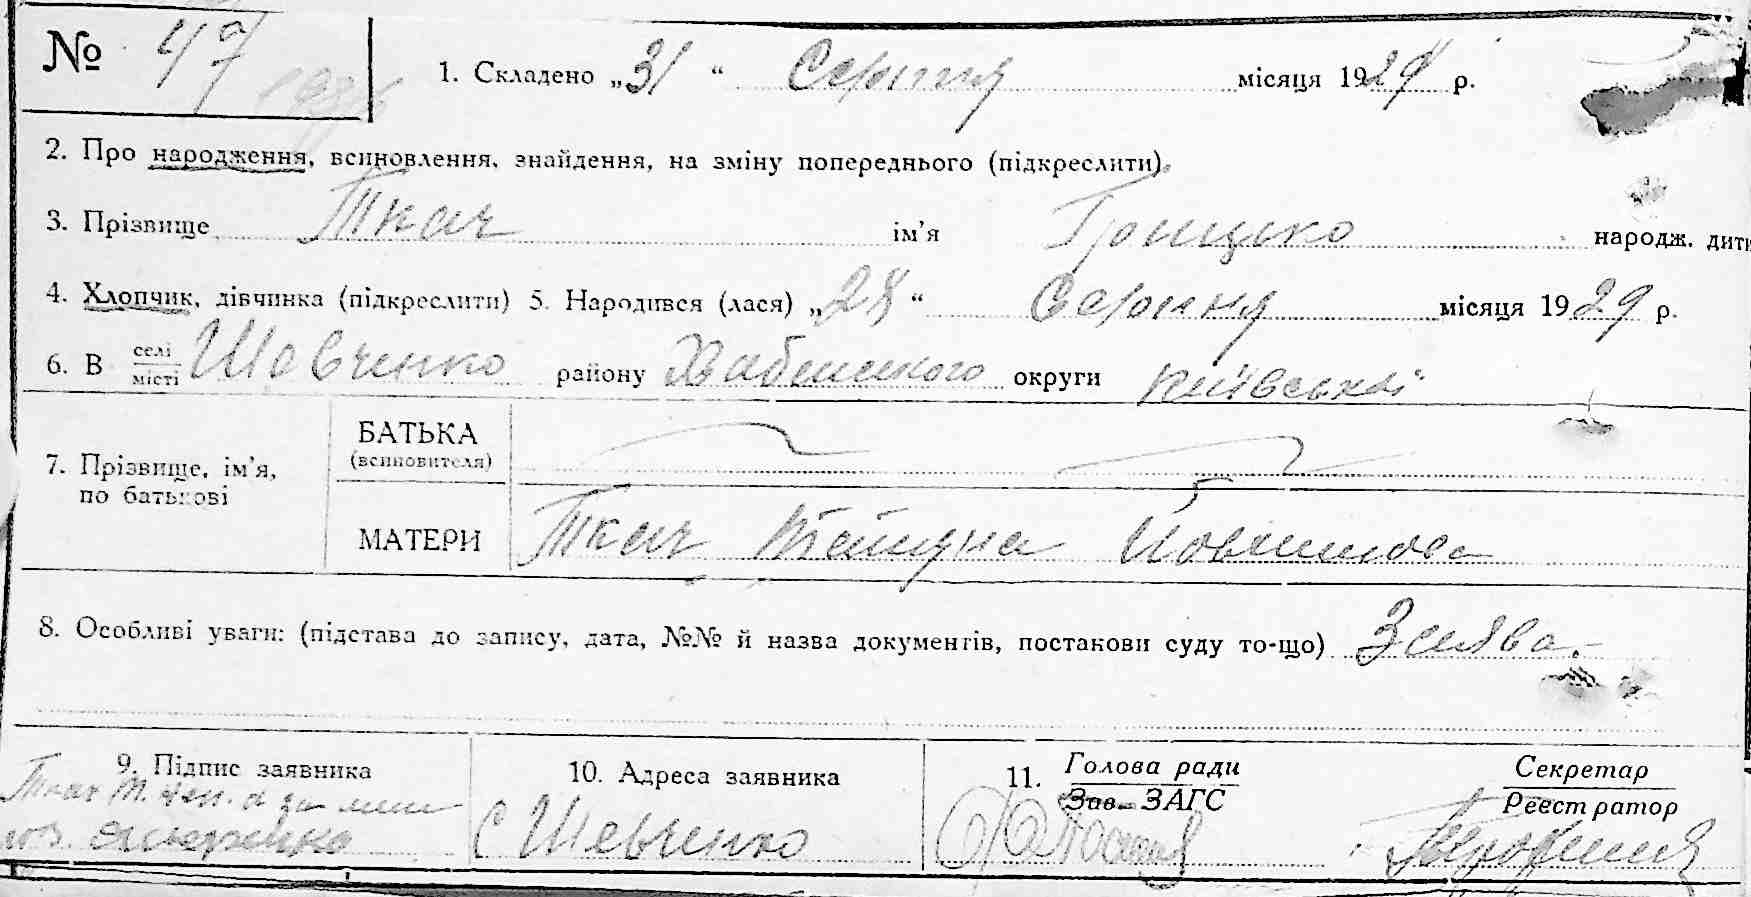 № 47
1. Складено „31“ Серпня місяця 1929 р.
2. Про народження, всиновлення, знайдення, на зміну попереднього (підкреслити).
3. Прізвище Ткач ім’я Грицько народж. дити
4. Хлопчик, дівчинка (підкреслити) 5. Народився (лася) „28“ Серпня місяця 1929 р.
6. В селі Шевченко району Хабенського округи Київської
місті
7. Прізвище, ім’я, по батькові
БАТЬКА
(всиновителя)
МАТЕРИ Ткач Тетяна
8. Особливі уваги: (підстава до запису, дата, №№ й назва документів, постанови суду то-що) Заява.
9. Підпис заявника
Ткач Т.
10. Адреса заявника
с Шевченко
11. Голова ради
Зав. ЗАГС
Секретар
Реєстратор